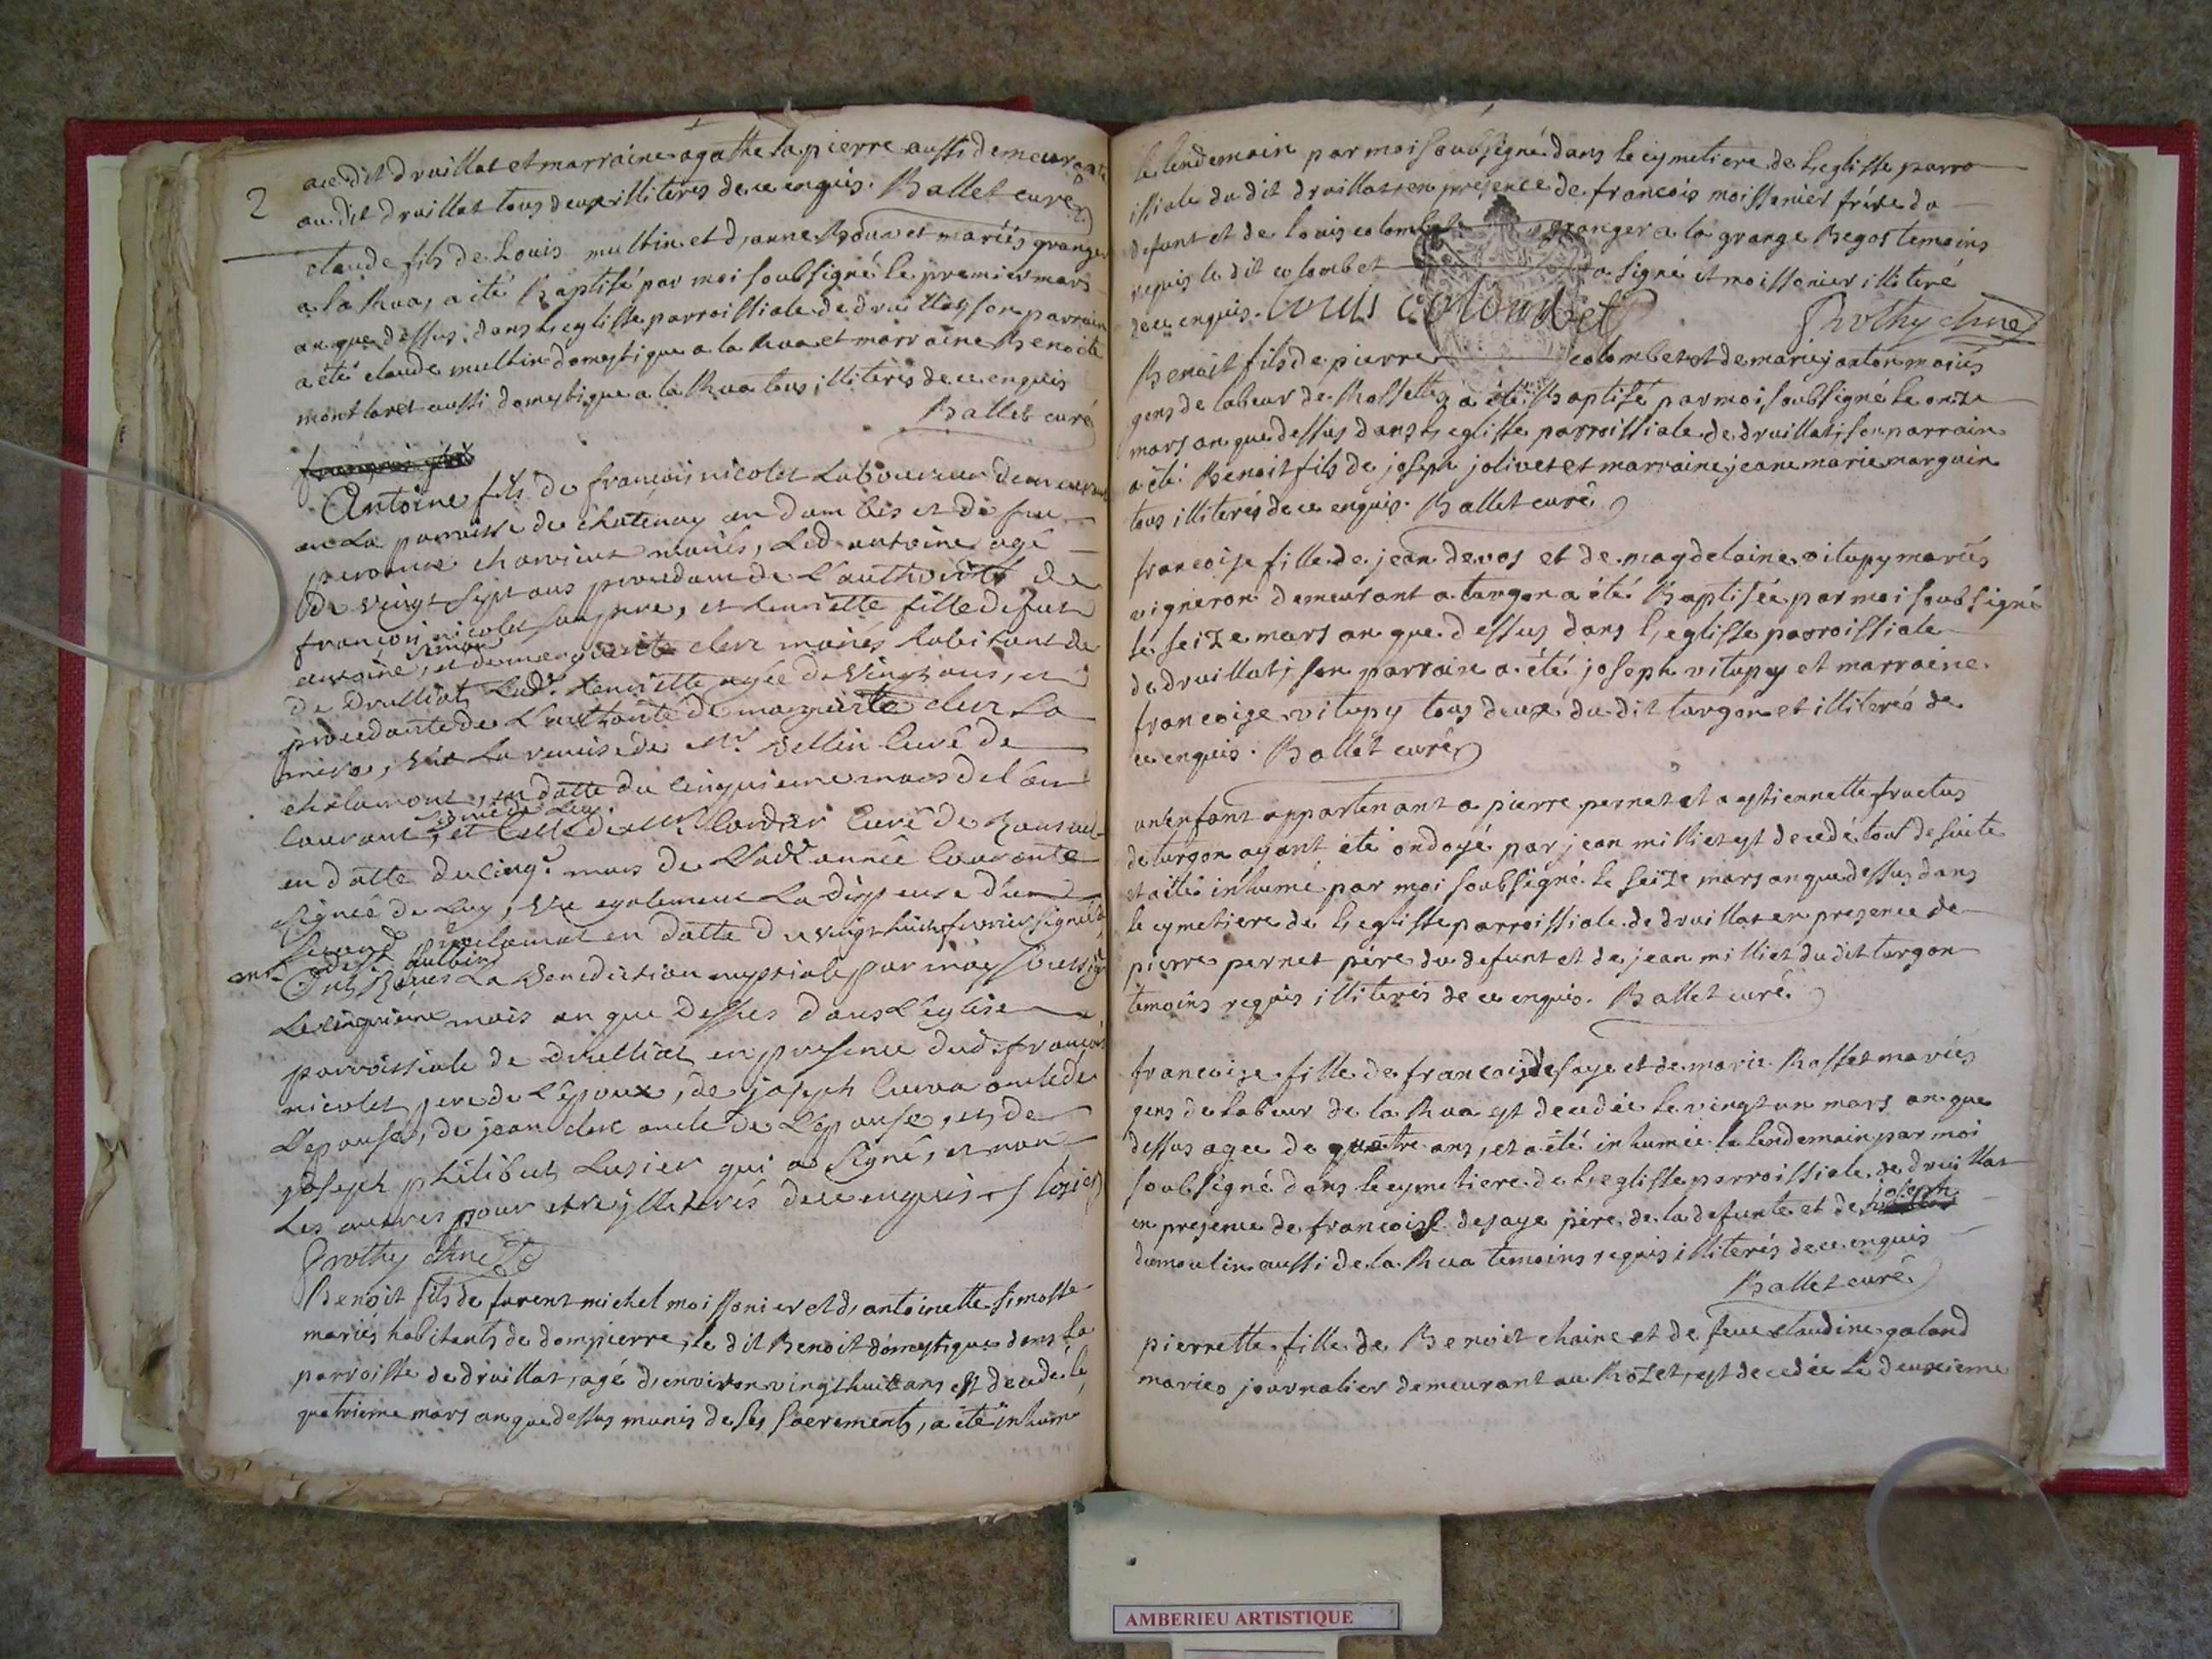 2
au dit druillat et marraine agathe lapierre aussi demeurant
au dit druillat tous deux illiteres de ce enquis. Ballet curé
claude fils de Louis multin et d'anne mariés granger
a la Rua, a été Baptisé par moi soubsigné le premier mars
an que dessus dans l'eglisse parroissiale de druillat, son parrain
a été claude multin domestique a la Rua et marraine Benoite
montlaret aussi domestique a la Rua tous illiterés de ce enquis
Ballet curé
Antoine fils de françois nicolet Laboureur demeurant
en La parroisse de chatenay en dombes et de feu
peronne charvieux mariés, Led. antoine agé
de vingt sept ans procedant de L'authorité de
françois nicolet son pere, et henriette fille de feu
antoine simon, et de marguerite clerc mariés habitant de
de druillat Lad.e henriette agée de vingt ans, et
procedante de L'authorité de marguerite clerc La
mere, vue La remise de Mr. vellin Curé de
chalamont, en datte du cinquieme mars de l'an
courant, signée de Luy, et celle de Mr. Curé de
en datte du cinq.e mars de Lad.e année Courante
signée de Luy, vue egalement La dispense d'un
second en datte du vingt huit fevrier signée
ont Reçus La Benediction nuptiale par moy soussigné
Le cinquieme mars an que dessus dans L'eglise
parroissiale de druillat en presence dud. françois
nicolet pere de L'epoux, de joseph Cuva oncle de
L'epouse, de jean clerc oncle de L'epouse, et de
joseph philibert Lusier qui a signé, et non
Les autres pour etre illeterés de ce enquis
Brothy
Benoit fils de furent michel moissonier et d'antoinette simosse
mariés habitants de dompierre, le dit Benoit domestique dans la
parroisse de druillat, agé d'environ vingt huit ans est decedé le
quatrieme mars an que dessus munis de ses sacrements, a été inhumé
le lendemain par moi soubsigné dans le cymetiere de l'eglisse parro
issiale du dit druillat en presence de francois moissonier frére du
defunt et de louis colombet granger a la grange Begos temoins
requis le dit colombet a signé et moissonier illiteré
de ce enquis. Louis colombet
Brothy
Benoit fils de pierre colombet et de marie janton mariés
gens de labeur de Rossettes a été Baptisé par moi soubsigné le onze
mars an que dessus dans l'eglisse parroissiale de druillat, son parrain
a été Benoit fils de joseph jolivet et marraine jeane marie marguin
tous illiterés de ce enquis. Ballet curé
francoise fille de jean devos et de magdelaine vitupy mariés
vigneron demeurant a turgon a été Baptisée par moi soubsigné
le seize mars an que dessus dans l'eglisse parroissiale
de druillat, son parrain a été joseph vitupy et marraine
francoise vitupy tous deux du dit turgon et illiterés de
ce enquis. Ballet curé
un enfant appartenant a pierre pernet et a estiennette fructus
de turgon ayant été ondoyé par jean milliet est decedé tout de suite
et a été inhumé par moi soubsigné le seize mars an que dessus dans
le cymetiere de l'eglisse parroissiale de druillat en presence de
pierre pernet père du defunt et de jean milliet du dit turgon
temoins requis illiterés de ce enquis. Ballet curé
francoise fille de francois desaye et de marie Rosset mariés
gens de labeur de la Rua est decedée le vingt un mars an que
dessus agee de quatre ans, et a été inhumée le lendemain par moi
soubsigné dans le cymetiere de l'eglisse parroissiale de druillat
en presence de francois desaye père de la defunte et de joseph
dumoulin aussi de la Rua temoins requis illiterés de ce enquis
Ballet curé
pierrette fille de Benoit chaine et de feue claudine galand
mariés journalier demeurant au Rozet, est decedée le deuxieme
AMBERIEU ARTISTIQUE